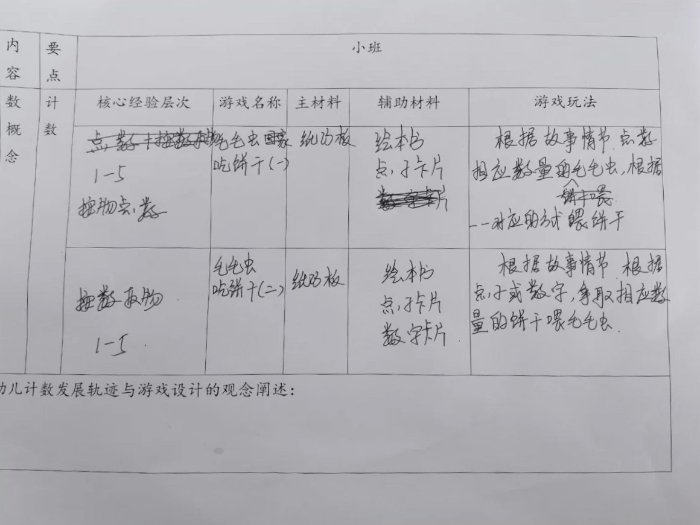 内容
要点
小班
数概念
计数
核心经验层次
游戏名称
主材料
辅助材料
游戏玩法
点数
1-5
按物点数
毛毛虫
吃饼干(一)
纸巧板
绘本书
点子卡片
根据故事情节点数
相应数量的毛毛虫,根据
饼干喂
一一对应的方式喂饼干
按数取物
1-5
毛毛虫
吃饼干(二)
纸巧板
绘本书
点子卡片
数字卡片
根据故事情节,根据
点子或数字,拿取相应数
量的饼干喂毛毛虫.
幼儿计数发展轨迹与游戏设计的观念阐述: